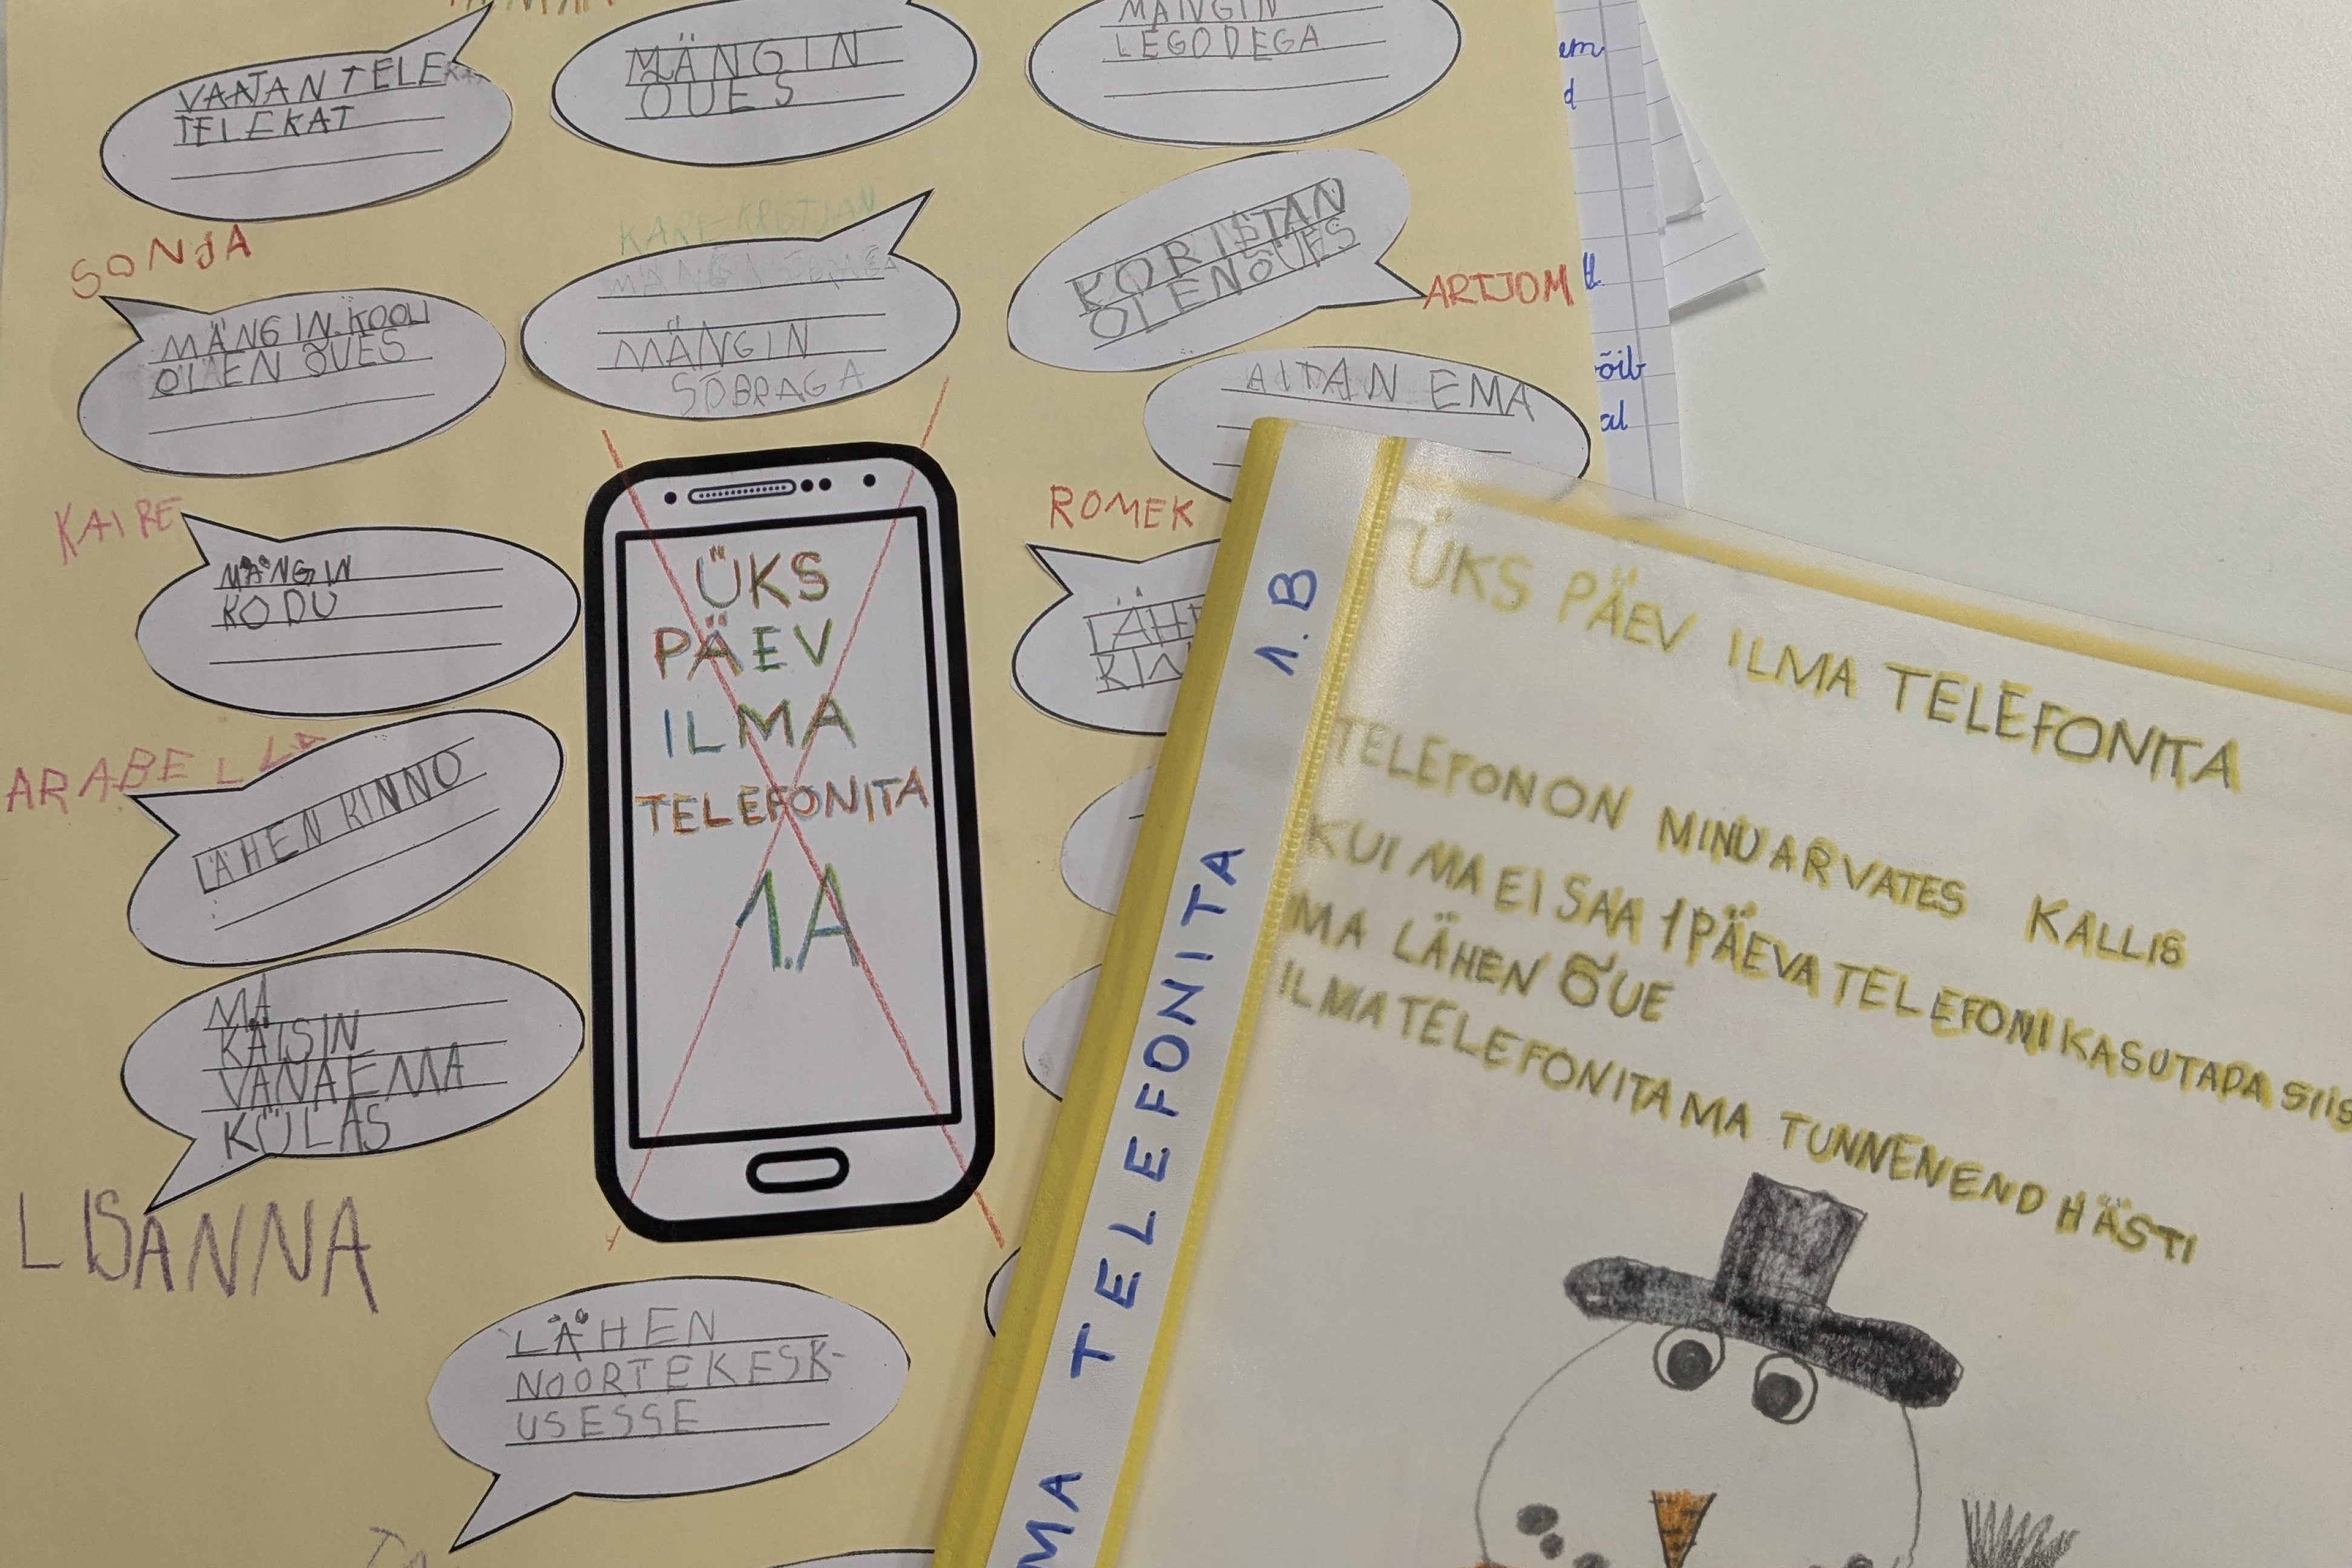 VAATAN TELE
TELEKAT
MÄNGIN
ÕUES
MÄNGIN
LEGODEGA
SONJA
MÄNGIN KOOLI
OLEN ÕUES
KARL-KRISTJAN
MÄNGIN
SÕBRAGA
KORISTAN
OLEN ÕUES
ARTJOM
AITAN EMA
KAIRE
MÄNGIN
KODU
ROMEK
LÄHE
KIN
ARABELLA
LÄHEN KINNO
MA
KÄISIN
VANAEMA
KÜLAS
LISANNA
ÜKS
PÄEV
ILMA
TELEFONITA
1.A
LÄHEN
NOORTEKESK-
USESSE
em
d
õib
al
1.B
MA TELEFONITA
ÜKS PÄEV ILMA TELEFONITA
TELEFON ON MINU ARVATES KALLIS
KUI MA EI SAA 1 PÄEVA TELEFONI KASUTADA SIIS
MA LÄHEN ÕUE
ILMA TELEFONITA MA TUNNEN END HÄSTI